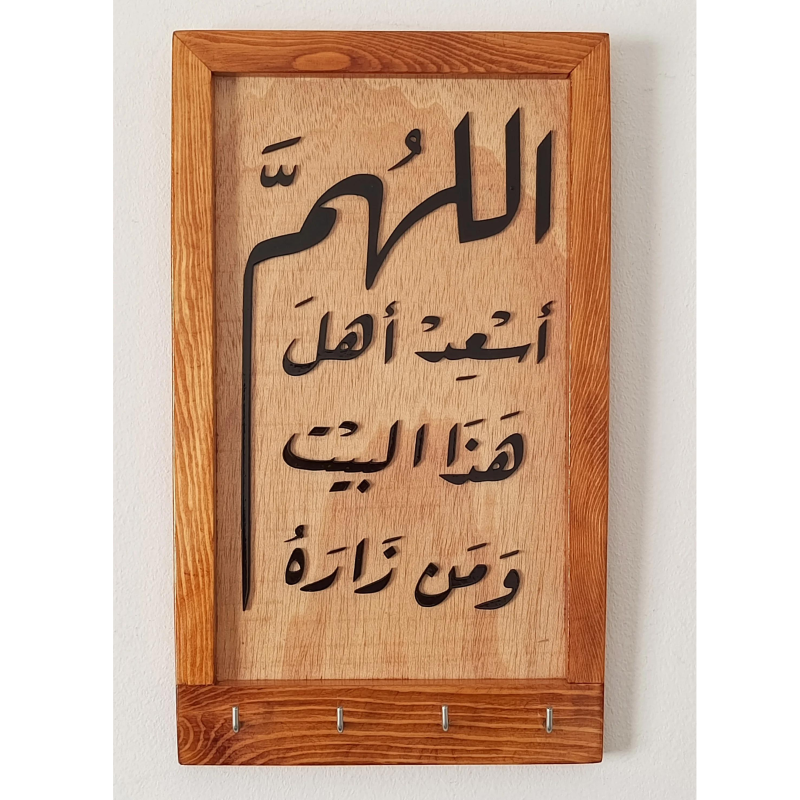 اللهُمَّ
أسْعِدْ أهلَ
هَذَا البيْت
وَمَن زَارَهُ